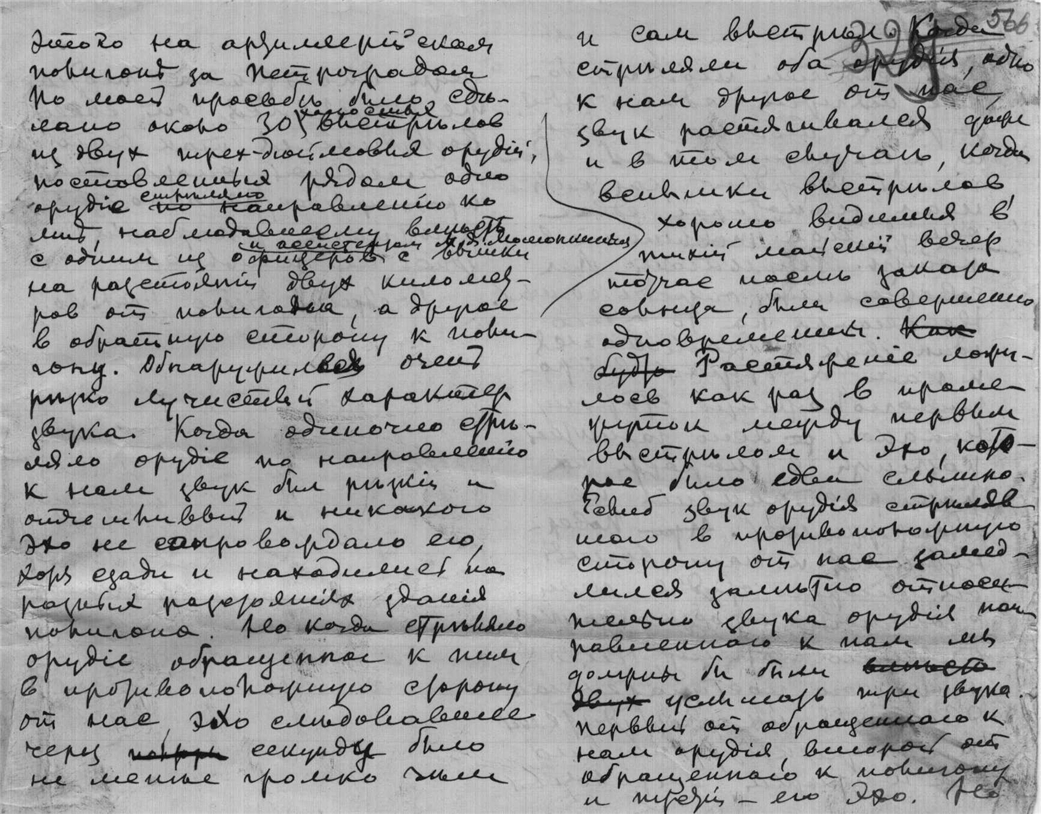 этого на артиллерійском
полигонѣ за Петроградом
по моей просьбѣ было сдѣ-
лано около 30 холостых выстрѣлов
из двух трех-дюймовых орудій,
поставленных рядом одно
орудіе стрѣляло по направленію ко
мнѣ, наблюдавшему вмѣстѣ
с одним из офицеров и ассистентом с вышки
на разстояніи двух километ-
ров от полигона, а другое
в обратную сторону к поли-
гону. Обнаружился очень
рѣзко лучистый характер
звука. Когда одиночно стрѣ-
ляло орудіе по направленію
к нам звук был рѣзкій и
отчетливый и никакого
эхо не сопровождало его,
хотя сзади и находились на
разных разстояніях зданія
полигона. Но когда стрѣляло
орудіе обращенное к ним
в противоположную сторону
от нас эхо слѣдовавшее
через секунды было
не менѣе громко чѣм
566
324
и сам выстрѣл. Когда
стрѣляли оба орудія, одно
к нам другое от нас,
звук растягивался даже
и в том случаѣ, когда
вспышки выстрѣлов,
хорошо видимыя в
тихій майскій вечер
тотчас послѣ заката
солнца, были совершенно
одновременны. Как
будто Растяженіе ложи-
лось как раз в проме-
жуток между первым
выстрѣлом и эхо, кото-
рое было едва слышно.
Если б звук орудія стрѣляв
шаго в противоположную
сторону от нас замед-
лился замѣтно относи-
тельно звука орудія нап
равленнаго к нам мы
должны бы были вмѣсто
двух услышать три звука.
первый от обращеннаго к
нам орудія, второй от
обращеннаго к полигону
и третій – его эхо. Но